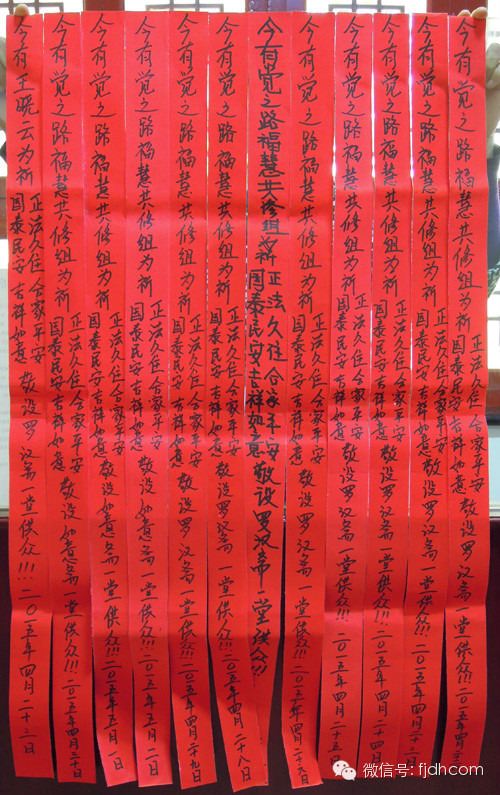 今有觉之路福慧共修组为祈
正法久住合家平安
国泰民安吉祥如意
敬设罗汉斋一堂供众!!!二〇一五年四月
今有觉之路福慧共修组为祈
正法久住合家平安
国泰民安吉祥如意
敬设罗汉斋一堂供众!!!二〇一五年四月二十三日
今有觉之路福慧共修组为祈
正法久住合家平安
国泰民安吉祥如意
敬设罗汉斋一堂供众!!!二〇一五年四月二十四日
今有觉之路福慧共修组为祈
正法久住合家平安
国泰民安吉祥如意
敬设罗汉斋一堂供众!!!二〇一五年四月二十五日
今有觉之路福慧共修组为祈
正法久住合家平安
国泰民安吉祥如意
敬设罗汉斋一堂供众!!!二〇一五年四月二十日
今有觉之路福慧共修组为祈
正法久住合家平安
国泰民安吉祥如意
敬设罗汉斋一堂供众!!!
今有觉之路福慧共修组为祈
正法久住合家平安
国泰民安吉祥如意
敬设罗汉斋一堂供众!!!二〇一五年四月二十八日
今有觉之路福慧共修组为祈
正法久住合家平安
国泰民安吉祥如意
敬设罗汉斋一堂供众!!!二〇一五年四月二十九日
今有觉之路福慧共修组为祈
正法久住合家平安
国泰民安吉祥如意
敬设如意斋一堂供众!!!二〇一五年五月二日
今有觉之路福慧共修组为祈
正法久住合家平安
国泰民安吉祥如意
敬设如意斋一堂供众!!!二〇一五年五月一日
今有觉之路福慧共修组为祈
正法久住合家平安
国泰民安吉祥如意
敬设如意斋一堂供众!!!二〇一五年四月三十日
今有王晓云为祈
正法久住合家平安
国泰民安吉祥如意
敬设罗汉斋一堂供众!!!二〇一五年四月二十三日
微信号: fjdhcom